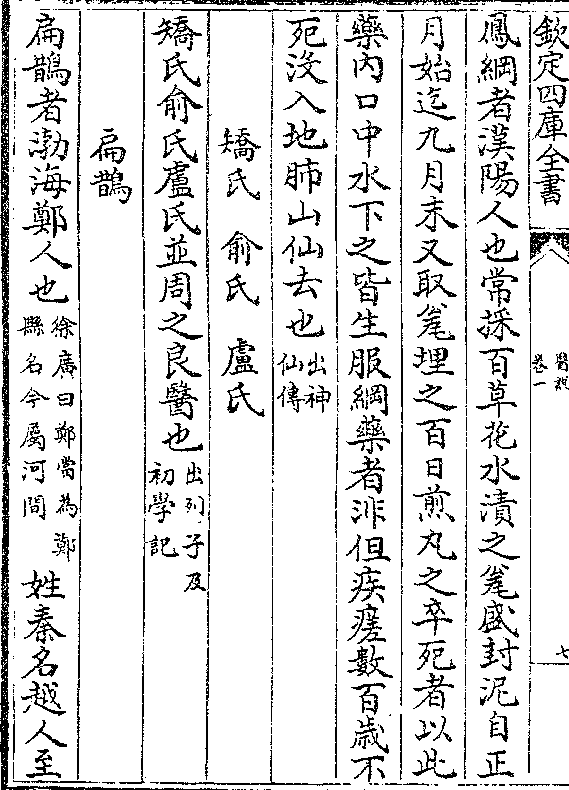 欽定四庫全書
醫說
卷一
七
鳳綱者漢陽人也常採百草花水漬之甕盛封泥自正
月始迄九月末又取甕埋之百日煎丸之卒死者以此
藥內口中水下之皆生服綱藥者非但疾瘥數百歳不
死沒入地肺山仙去也出神仙傳
矯氏 俞氏 盧氏
矯氏俞氏盧氏並周之良醫也出列子及初學記
扁鵲
扁鵲者渤海鄭人也徐廣曰鄭當為鄚縣名今屬河間姓秦名越人至